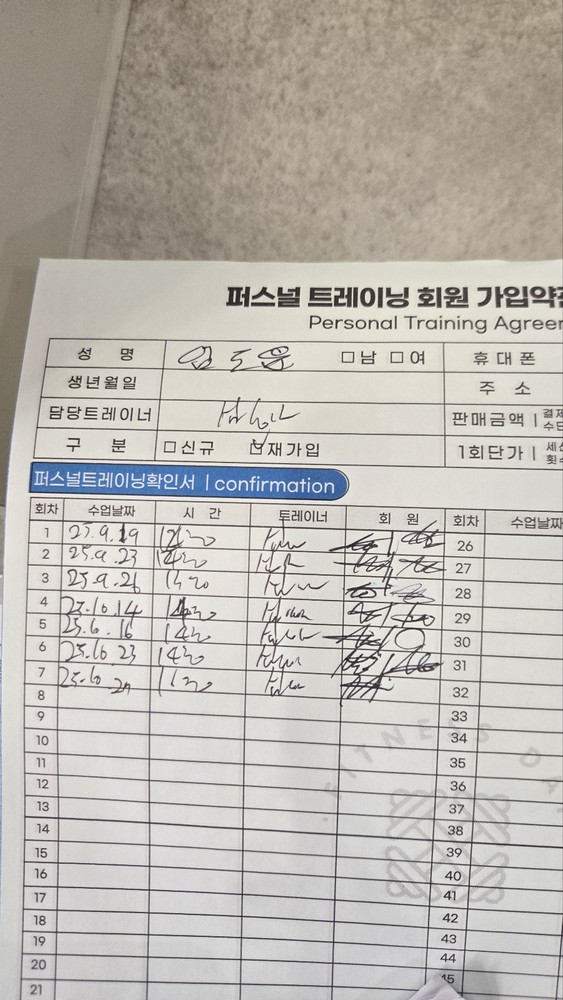 퍼스널 트레이닝 회원 가입약
Personal Training Agreer
성 명 임도윤 □남 □여 휴대폰
생년월일 주 소
담당트레이너 판매금액 결제 수단
구 분 □신규 ☑재가입 1회단가 세션 횟수
퍼스널트레이닝확인서 | confirmation
회차 수업날짜 시 간 트레이너 회 원 회차 수업날짜
1 25.9.19 26
2 25.9.23 1420 27
3 25.9.26 28
4 25.10.14 29
5 25.10.16 1420 30
6 25.10.23 1420 31
7 1120 32
8 33
9 34
10 35
11 36
12 37
13 38
14 39
15 40
16 41
17 42
18 43
19 44
20 45
21
FITNESS DA